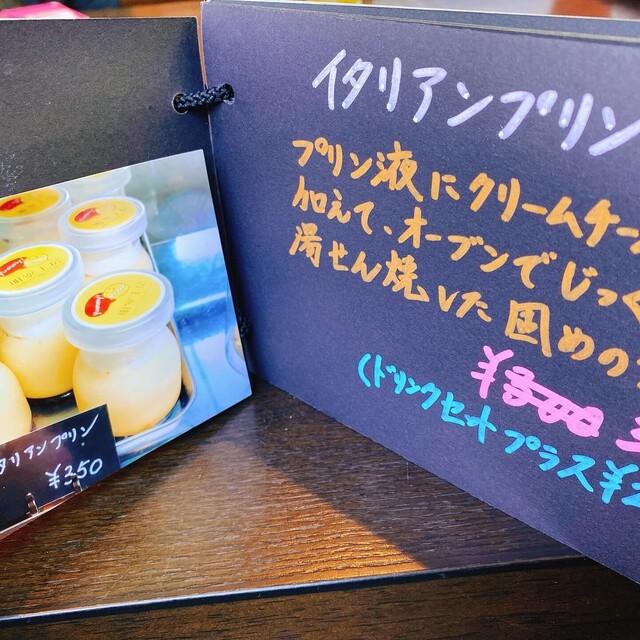 イタリアンプリン
プリン液にクリームチー
加えて、オーブンでじっく
湯せん焼した固めの
¥300
(ドリンクセットプラス¥2
タリアンプリン
¥350